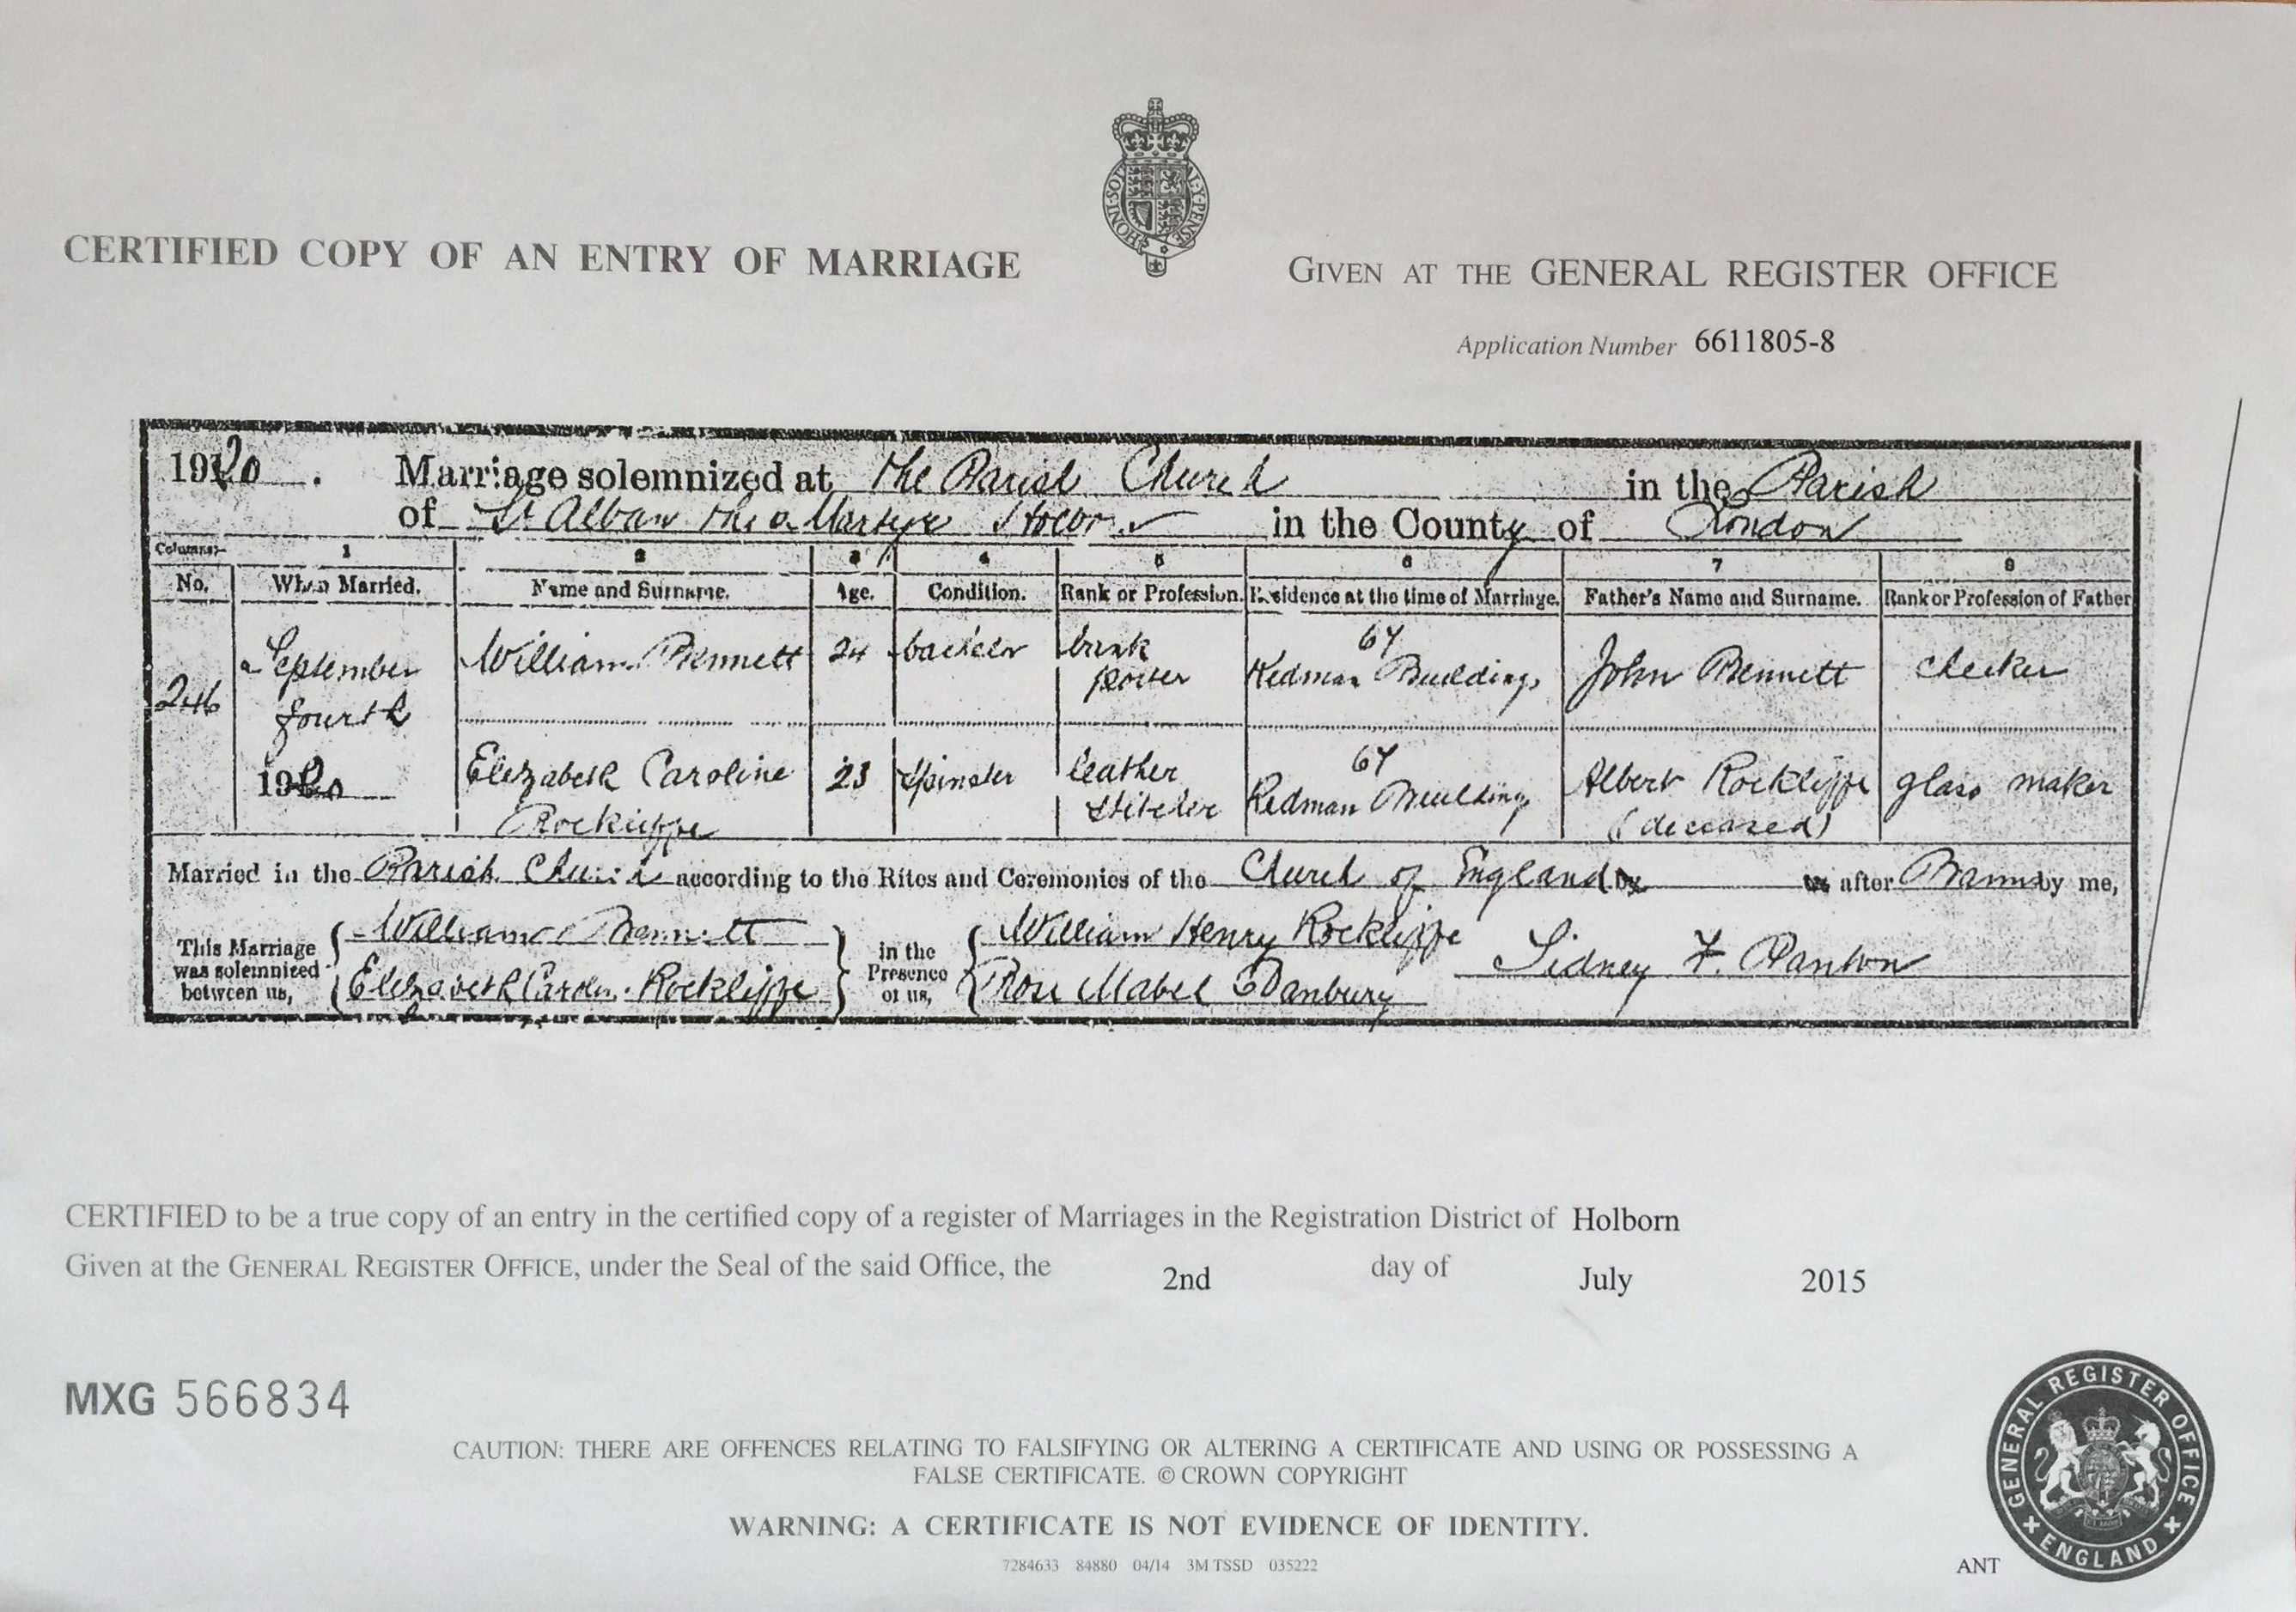 CERTIFIED COPY OF AN ENTRY OF MARRIAGE
GIVEN AT THE GENERAL REGISTER OFFICE
Application Number 6611805-8
1920. Marriage solemnized at the Parish Church in the Parish
of St Alban the Martyr Holbor in the County of London
Columns:- 1 2 3 4 5 6 7 8
No. When Married. Name and Surname. Age. Condition. Rank or Profession. Residence at the time of Marriage. Father's Name and Surname. Rank or Profession of Father
246 September fourth 1920
William Bennett 24 bachelor bank porter 67 Redman Buildings John Bennett checker
Elizabeth Caroline Rockliffe 23 spinster leather stitcher 67 Redman Buildings Albert Rockliffe (deceased) glass maker
Married in the Parish Church according to the Rites and Ceremonies of the Church of England by or after Banns by me,
This Marriage was solemnized between us,
William Bennett
Elizabeth Caroline Rockliffe
in the Presence of us,
William Henry Rockliffe
Rose Mabel Danbury
Sidney F. Panton
CERTIFIED to be a true copy of an entry in the certified copy of a register of Marriages in the Registration District of Holborn
Given at the GENERAL REGISTER OFFICE, under the Seal of the said Office, the 2nd day of July 2015
MXG 566834
CAUTION: THERE ARE OFFENCES RELATING TO FALSIFYING OR ALTERING A CERTIFICATE AND USING OR POSSESSING A
FALSE CERTIFICATE. © CROWN COPYRIGHT
WARNING: A CERTIFICATE IS NOT EVIDENCE OF IDENTITY.
7284633 84880 04/14 3M TSSD 035222
ANT
GENERAL REGISTER OFFICE
ENGLAND